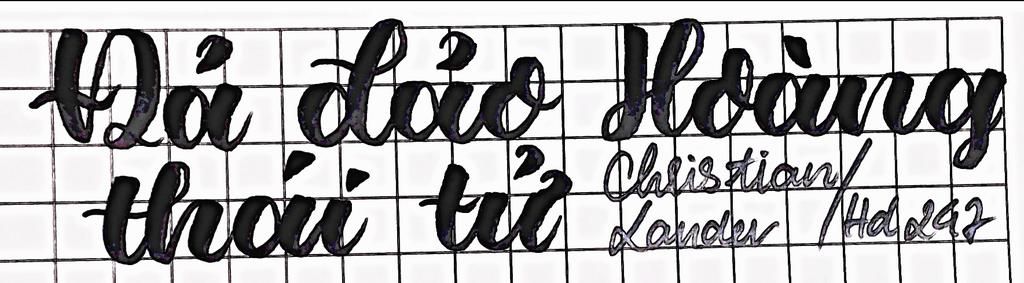 Đả đảo Hoàng
thái tử
Christian/
Lander /Hd 247